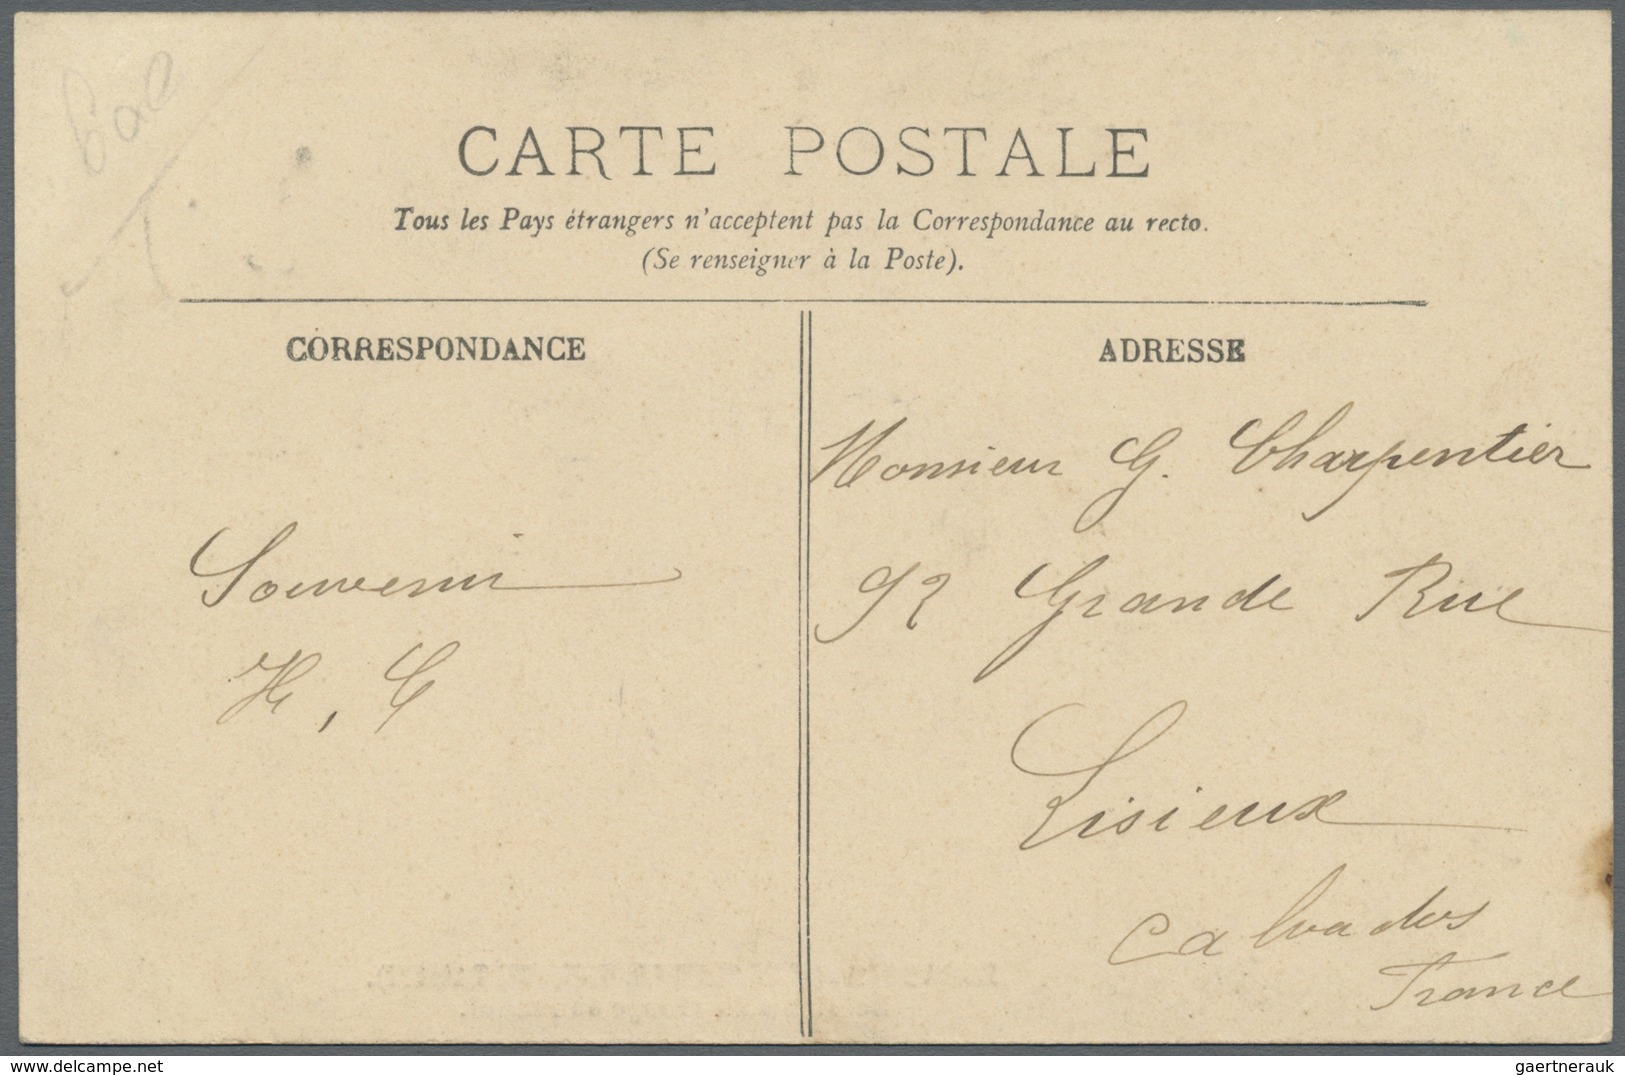 CARTE POSTALE
Tous les Pays étrangers n'acceptent pas la Correspondance au recto.
(Se renseigner à la Poste).
CORRESPONDANCE
ADRESSE
Souvenir
H, C
Monsieur G. Charpentier
92 Grande Rue
Lisieux
Calvados
France
gaertnerauk